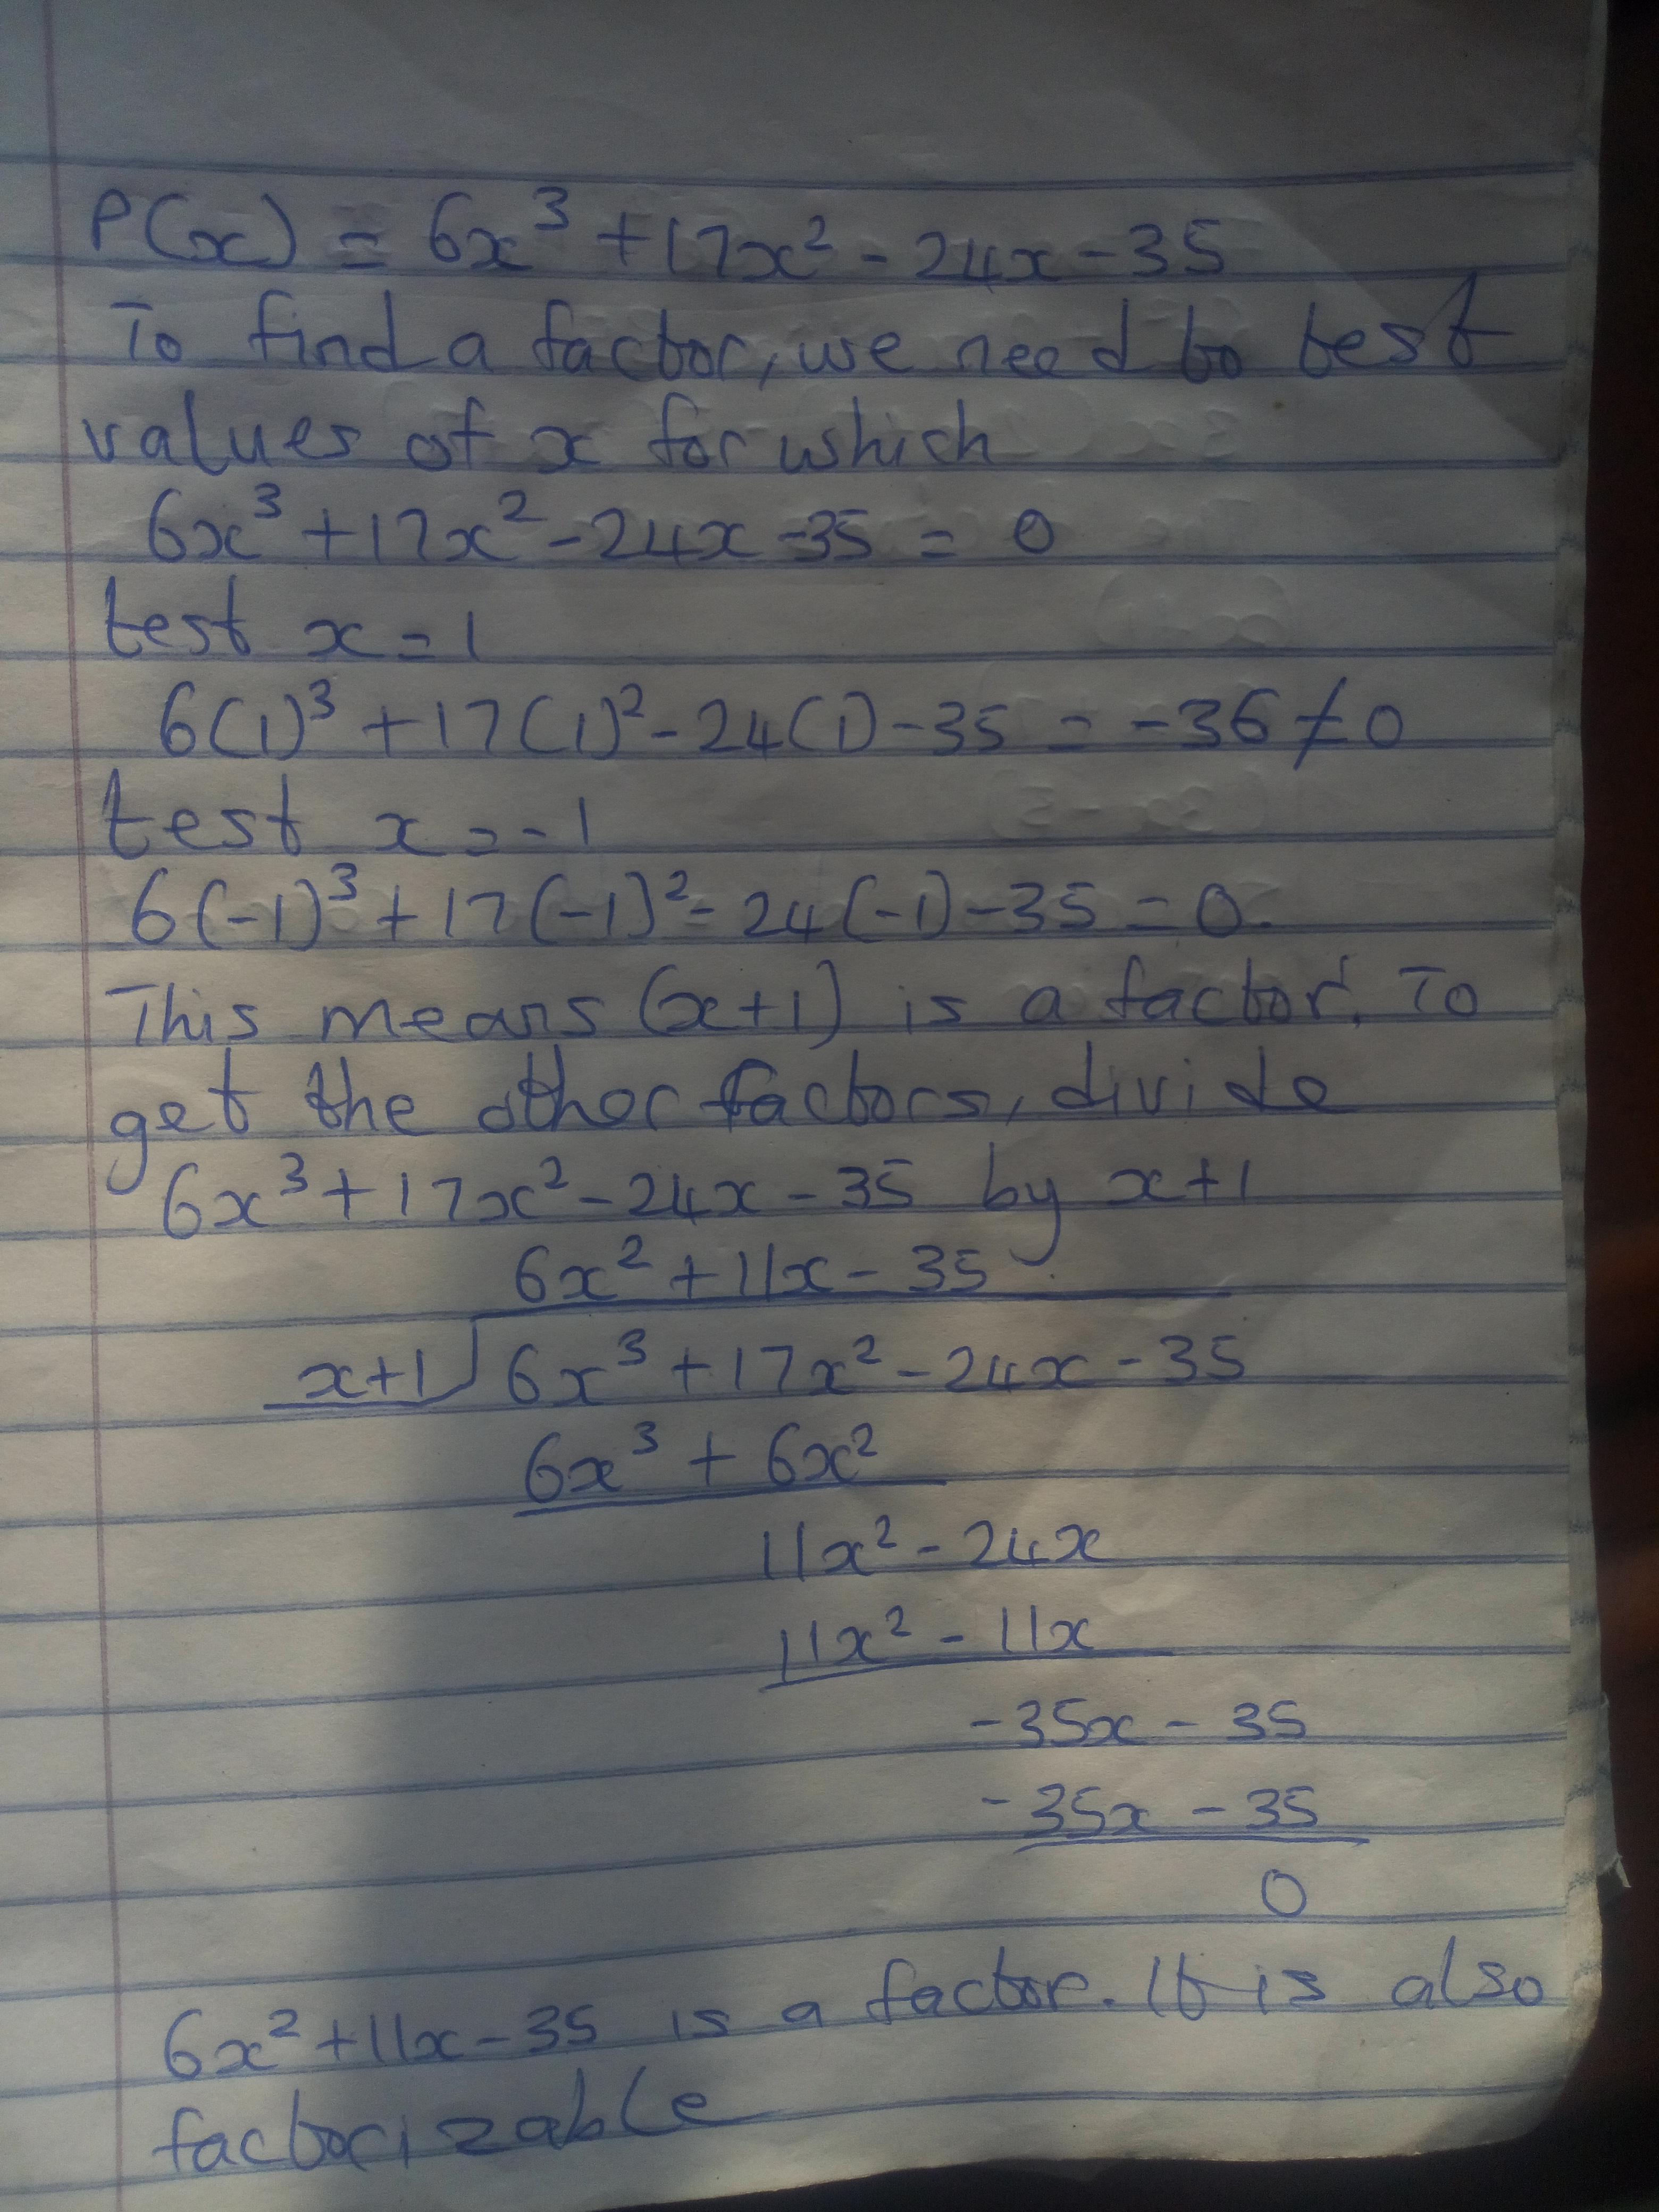 P(x) = 6x³ + 17x² - 24x - 35
To find a factor, we need to test
values of x for which
6x³ + 17x² - 24x - 35 = 0
test x = 1
6(1)³ + 17(1)² - 24(1) - 35 = -36 ≠ 0
test x = -1
6(-1)³ + 17(-1)² - 24(-1) - 35 = 0.
This means (x+1) is a factor. To
get the other factors, divide
6x³ + 17x² - 24x - 35 by x+1
6x² + 11x - 35
x+1 √6x³ + 17x² - 24x - 35
6x³ + 6x²
11x² - 24x
11x² - 11x
-35x - 35
-35x - 35
0
6x² + 11x - 35 is a factor. It is also
factorizable